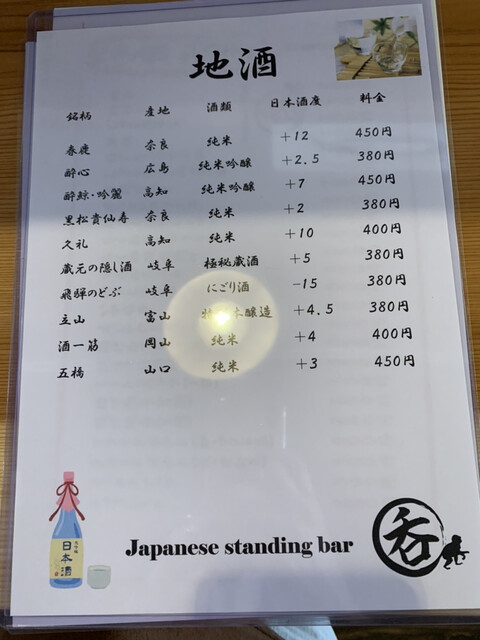 地酒
銘柄 産地 酒類 日本酒度 料金
春鹿 奈良 純米 +12 450円
酔心 広島 純米吟醸 +2.5 380円
酔鯨・吟麗 高知 純米吟醸 +7 450円
黒松貴仙寿 奈良 純米 +2 380円
久礼 高知 純米 +10 400円
蔵元の隠し酒 岐阜 極秘蔵酒 +5 380円
飛騨のどぶ 岐阜 にごり酒 -15 380円
立山 富山 本醸造 +4.5 380円
酒一筋 岡山 純米 +4 400円
五橋 山口 純米 +3 450円
日本酒
Japanese standing bar
呑